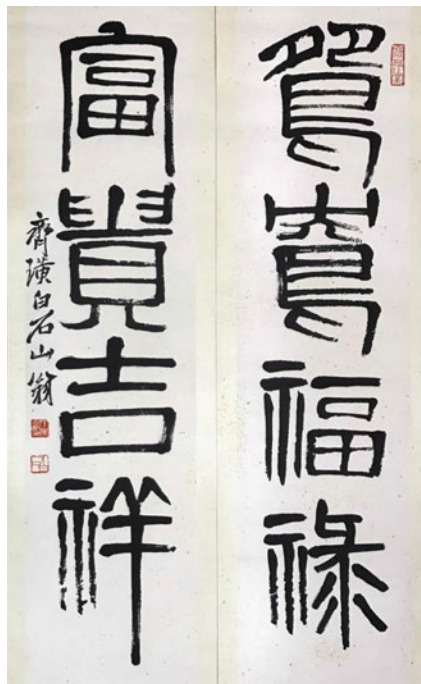 鴛鴦福祿
富貴吉祥
齊璜白石山翁